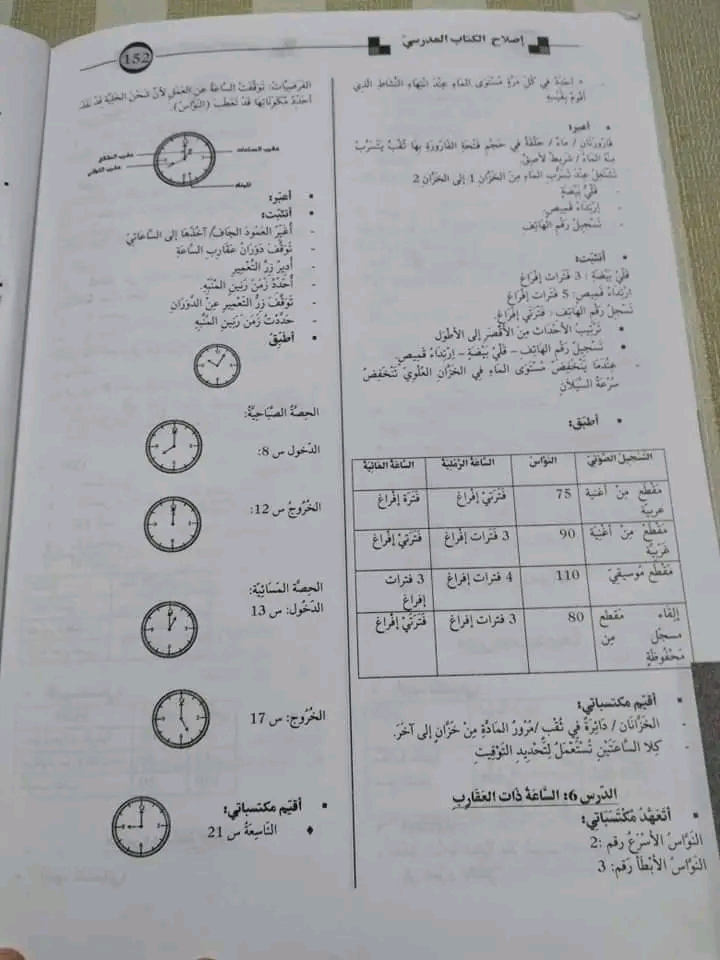 152
إصلاح الكتاب المدرسيّ
أحدد في كل مرة مستوى الماء عند انتهاء النشاط الذي
أقوم بقيسه
▪ أعبر:
قارورتان / ماء/ حلقة في حجم فتحة القارورة بها ثقب يتسرب
منه الماء/ شريط لاصق.
تشتغل عند تسرب الماء من الخزان 1 إلى الخزان 2
- قلي بيضة
- ارتداء قميص
- تسجيل رقم الهاتف
▪ أتثبت:
قلي بيضة : 3 فترات إفراغ
ارتداء قميص: 5 فترات إفراغ
تسجيل رقم الهاتف : فترتي إفراغ.
• ترتيب الأحداث من الأقصر إلى الأطول
• تسجيل رقم الهاتف – قلي بيضة – ارتداء قميص
- عندما ينخفض مستوى الماء في الخزان العلوي تنخفض
سرعة السيلان
▪ أطبق:
التسجيل الصوتي النواس الساعة الرملية الساعة المائية
مقطع من أغنية عربية 75 فترتي إفراغ فترة إفراغ
مقطع من أغنية غربية 90 3 فترات إفراغ فترتي إفراغ
مقطع موسيقي 110 4 فترات إفراغ 3 فترات إفراغ
إلقاء مقطع مسجل من محفوظة 80 3 فترات إفراغ فترتي إفراغ
▪ أقيم مكتسباتي:
- الخزانان / دائرة في ثقب /مرور المادة من خزان إلى آخر.
- كلا الساعتين تستعمل لتحديد التوقيت
الدرس 6: الساعة ذات العقارب
▪ أتعهد مكتسباتي:
النواس الأسرع رقم :2
النواس الأبطأ رقم: 3
الفرضيات: توقفت الساعة عن العمل لأن شحن الخلية قد نفد
أحد مكوناتها قد تعطب (النواس).
عقرب الساعات
عقرب الدقائق
عقرب الثواني
الميناء
▪ أعبر:
▪ أتثبت:
- أغير العمود الجاف/ آخذها إلى الساعاتي
- توقف دوران عقارب الساعة
- أدير زر التعمير
- أحدد زمن رنين المنبه.
- توقف زر التعمير عن الدوران
- حددت زمن رنين المنبه
▪ أطبق
الحصة الصباحية:
الدخول س 8:
الخروج س 12:
الحصة المسائية:
الدخول: س 13
الخروج: س 17
▪ أقيم مكتسباتي:
♦ التاسعة س 21